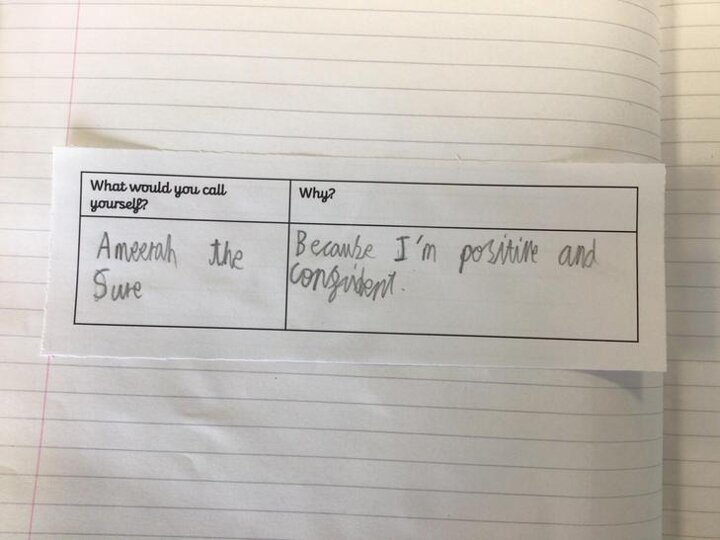 What would you call
yourself?
Why?
Ameerah the
Sure
Because I'm positive and
confident.